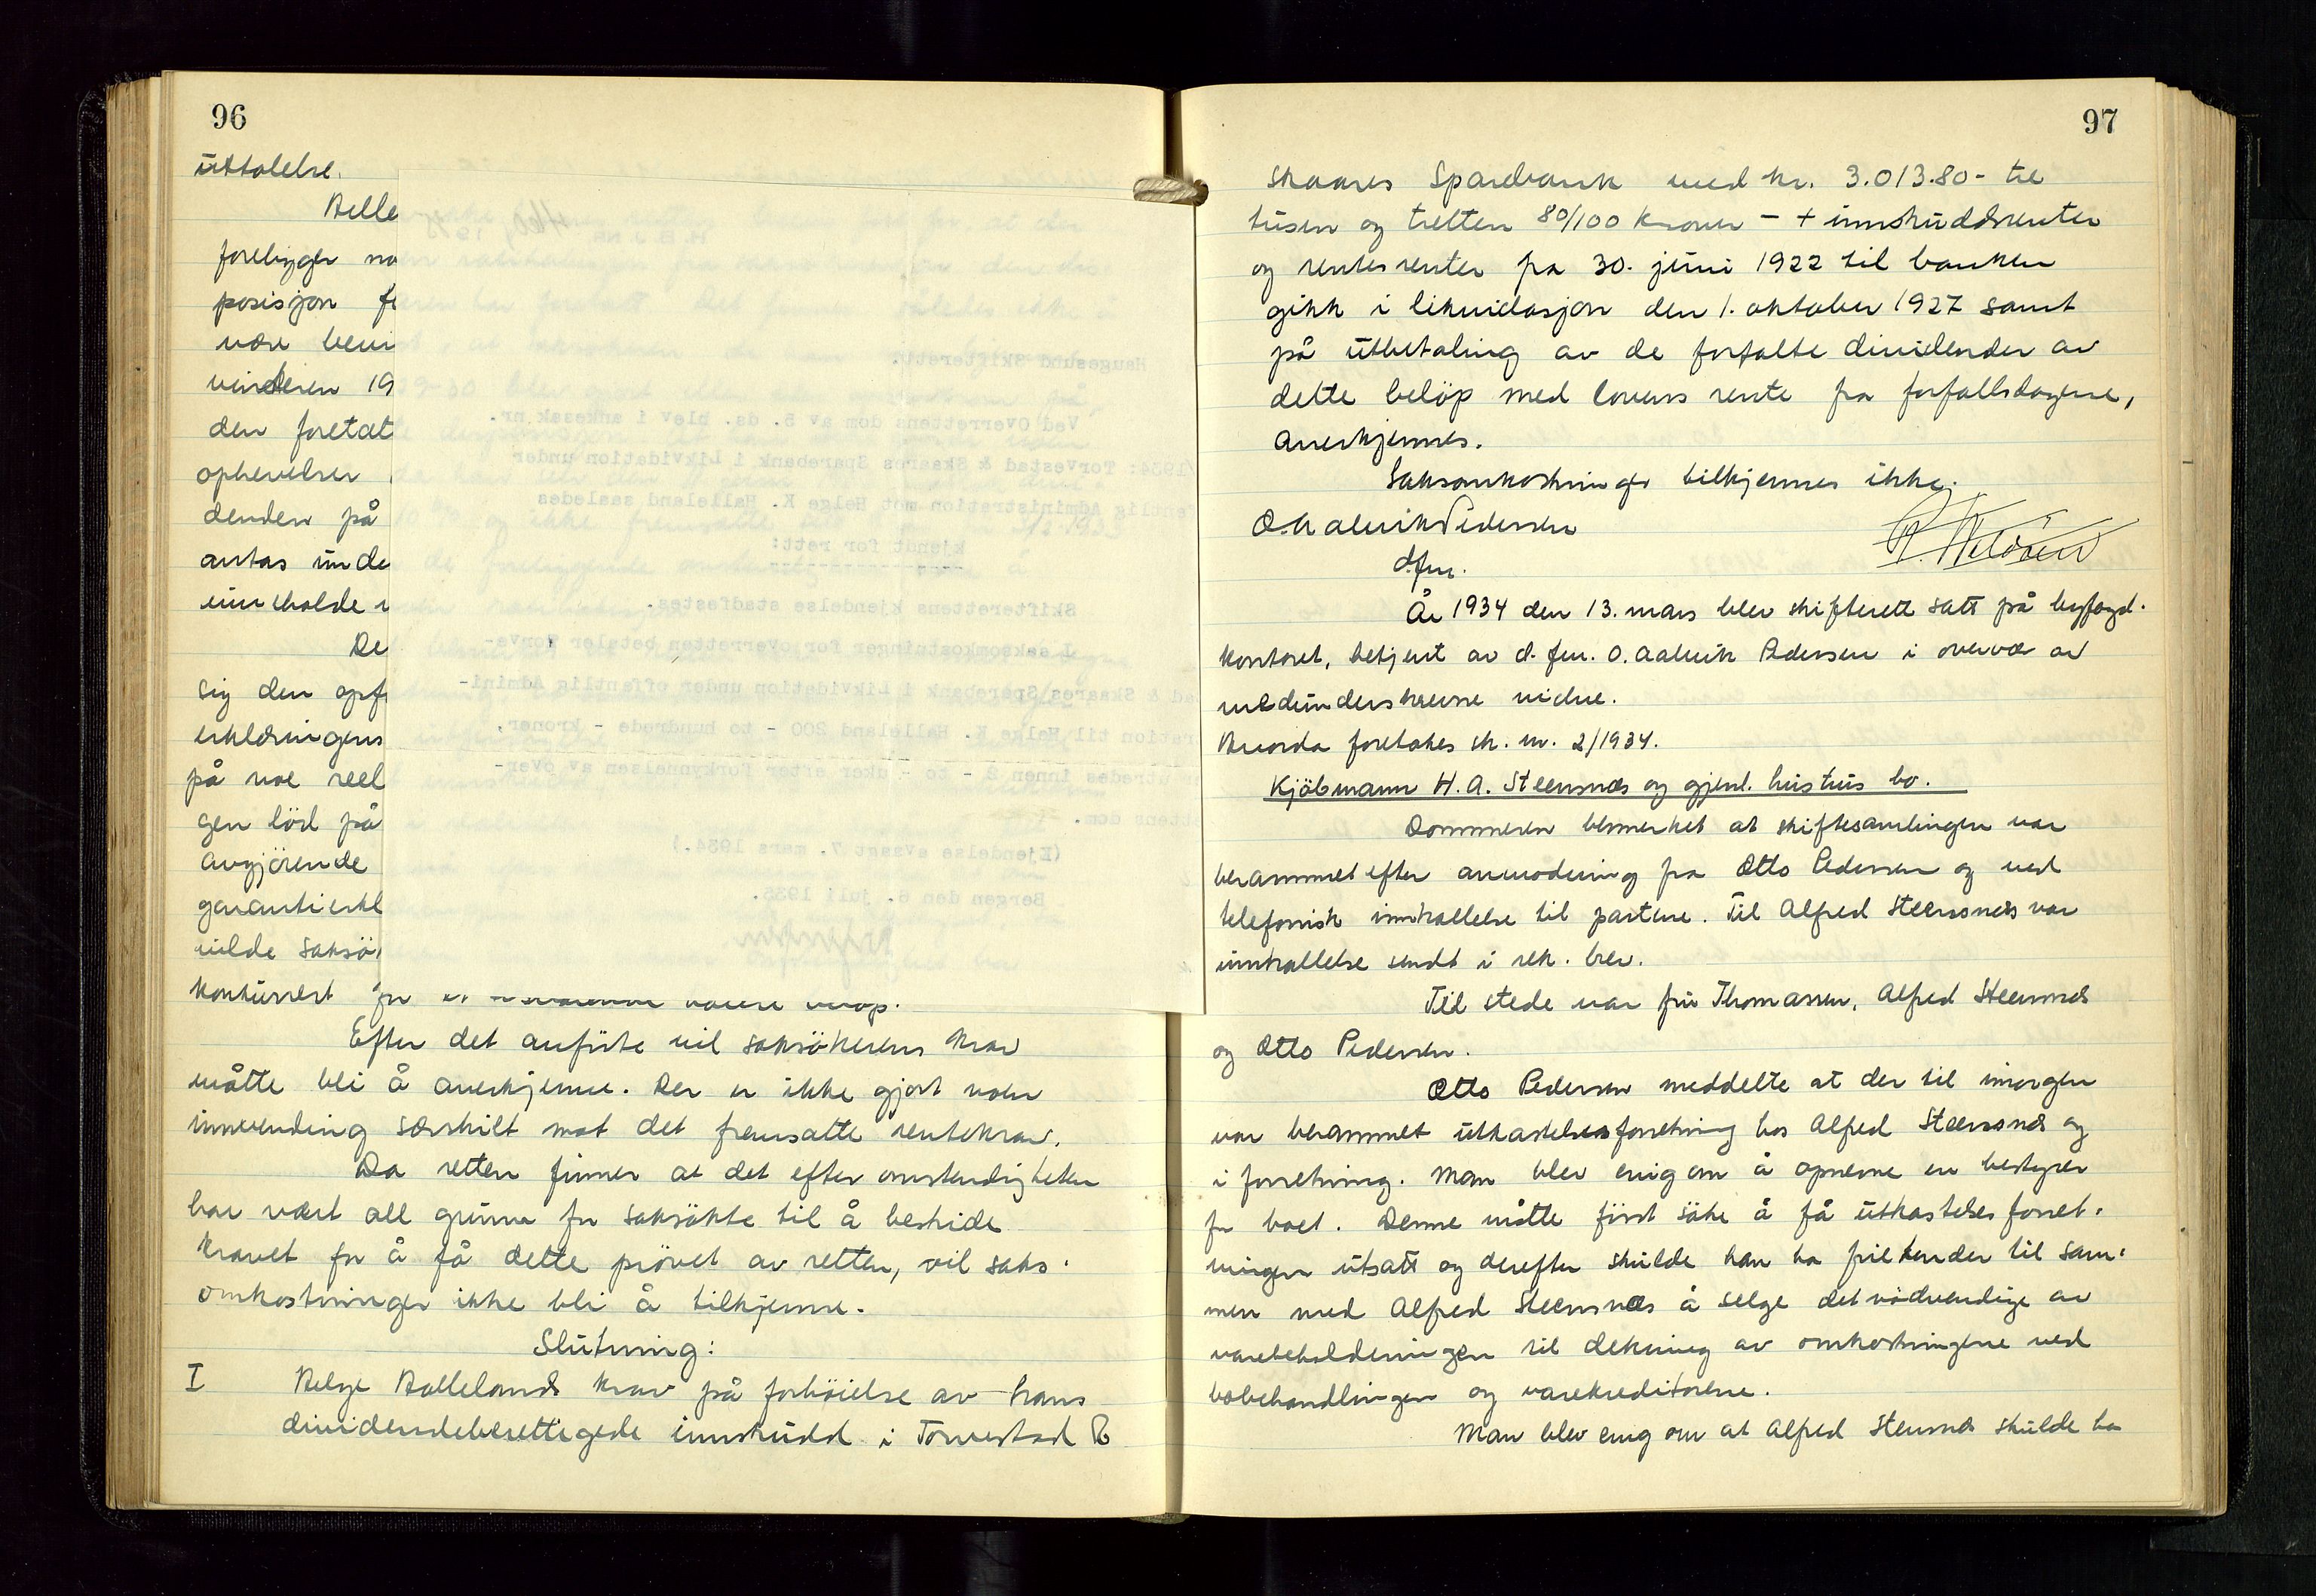 96
uttalelse.
Helle
foreligger no
posisjon f
være bevi
vinteren 19
den foretat
ophevelser
denden på
antas unde
inneholde
De
sig den opf
erklæringens
på noe reel
gen löd på
avgjörende
garantierkl
vilde saksö
konkurrert for
Efter det anförte vil saksökerens krav
måtte bli å anerkjenne. Der er ikke gjort noen
innvending særskilt mot det fremsatte rentekrav.
Da retten finner at det efter omstendigheten
har vært all grunn for saksökte til å bestride
kravet for å få dette prövet av retten, vil saks-
omkostninger ikke bli å tilkjenne.
Slutning:
I Helge Hallelands krav på forhöielse av hans
dividendeberettigede innskudd i Torvestad &
Haugesund Skifterett.
Ved Overrettens dom av 5. ds. blev i ankesak nr.
/1934: Torvestad & Skaares Sparebank i Likvidation under
entlig Administration mot Helge K. Halleland saaledes
kjendt for rett:
Skifterettens kjendelse stadfestes.
I saksomkostninger for overretten betaler Torve-
ad & Skaares Sparebank i Likvidation under offentlig Admini-
ration till Helge K. Halleland 200 - to hundrede - kroner,
utredes innen 2 - to - uker efter forkynnelsen av over-
ttens dom.
(Kjendelse avsagt 7. mars 1934.)
Bergen den 6. juli 1935.
97
Skaares Sparebank med kr. 3.013.80 - tre
tusen og tretten 80/100 kroner - + innskuddsrenter
og rentesrenter fra 30. juni 1922 til banken
gikk i likvidasjon den 1. oktober 1927 samt
på utbetaling av de forfalte dividender av
dette belöp med lovens rente fra forfallsdagene,
anerkjennes.
Saksomkostninger tilkjennes ikke.
O. Aalvik Pedersen
d.fm.
År 1934 den 13. mars blev skifterett satt på byfogd-
kontoret, betjent av d. fm. O. Aalvik Pedersen i overvær av
medunderskrevne vidne.
Hvorda foretakes sk. nr. 2/1934.
Kjöbmann H. A. Steensnæs og gjenl. hustrus bo.
Dommeren bemerket at skiftesamlingen var
berammet efter anmodning fra Otto Pedersen og ved
telefonisk innkallelse til partene. Til Alfred Steensnæs var
innkallelse sendt i rek. brev.
Til stede var fru Thomassen, Alfred Steensnæs
og Otto Pedersen.
Otto Pedersen meddelte at der til imorgen
var berammet utkastelsesforretning hos Alfred Steensnæs og
i forretning. Man blev enig om å opnevne en bestyrer
for boet. Denne måtte först söke å få utkastelsesforret-
ningen utsatt og derefter skulde han ha frie hender til sam-
men med Alfred Steensnæs å selge det nödvendige av
varebeholdningen til dekning av omkostningene ved
bobehandlingen og varekreditorene.
Man blev enig om at Alfred Steensnæs skulde ha